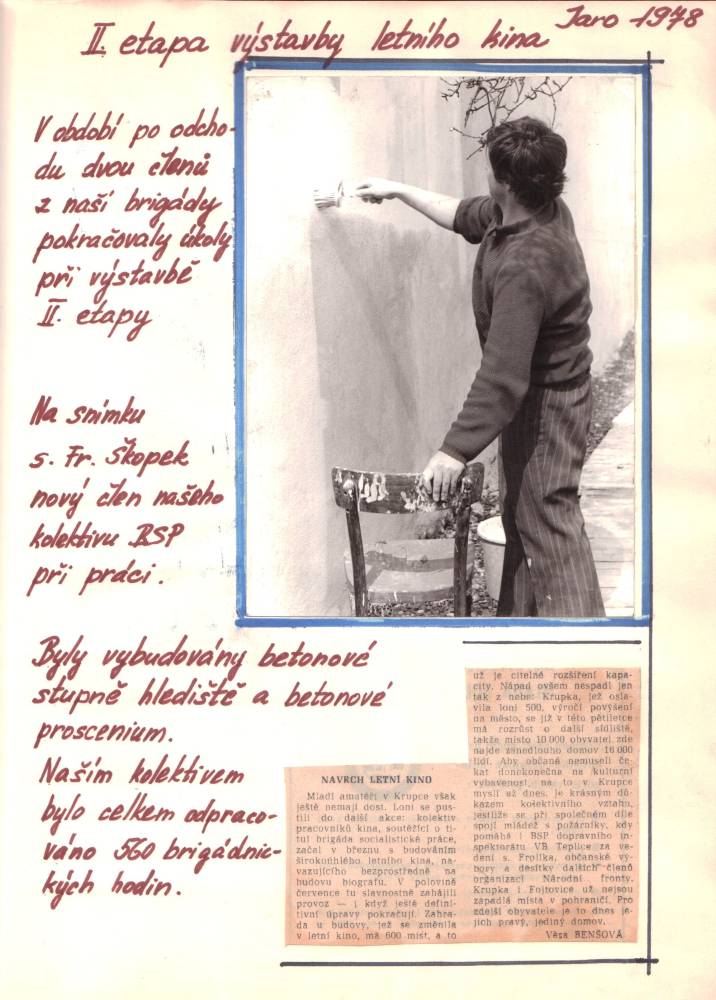 II. etapa výstavby letního kina
Jaro 1978
V období po odcho-
du dvou členů
z naší brigády
pokračovaly úkoly
při výstavbě
II. etapy
Na snímku
s. Fr. Škopek
nový člen našeho
kolektivu BSP
při práci.
Byly vybudovány betonové
stupně hlediště a betonové
proscenium.
Naším kolektivem
bylo celkem odpraco-
váno 560 brigádnic-
kých hodin.
NAVRCH LETNÍ KINO
Mladí amatéři v Krupce však
ještě nemají dost. Loni se pus-
tili do další akce: kolektiv
pracovníků kina, soutěžící o ti-
tul brigáda socialistické práce,
začal v březnu s budováním
širokoúhlého letního kina, na-
vazujícího bezprostředně na
budovu biografu. V polovině
července tu slavnostně zahájili
provoz — i když ještě defini-
tivní úpravy pokračují. Zahra-
da u budovy, jež se změnila
v letní kino, má 600 míst, a to
už je citelné rozšíření kapa-
city. Nápad ovšem nespadl jen
tak z nebe: Krupka, jež osla-
vila loni 500. výročí povýšení
na město, se již v této pětiletce
má rozrůst o další sídliště,
takže místo 10 000 obyvatel zde
najde zanedlouho domov 16 000
lidí. Aby občané nemuseli če-
kat donekonečna na kulturní
vybavenost, na to v Krupce
myslí už dnes. Je krásným dů-
kazem kolektivního vztahu,
jestliže se při společném díle
spojí mládež s požárníky, kdy
pomáhá i BSP dopravního in-
spektorátu VB Teplice za ve-
dení s. Frolíka, občanské vý-
bory a desítky dalších členů
organizací Národní fronty.
Krupka i Fojtovice už nejsou
zapadlá místa v pohraničí. Pro
zdejší obyvatele je to dnes je-
jich pravý, jediný domov.
Věra BENŠOVÁ